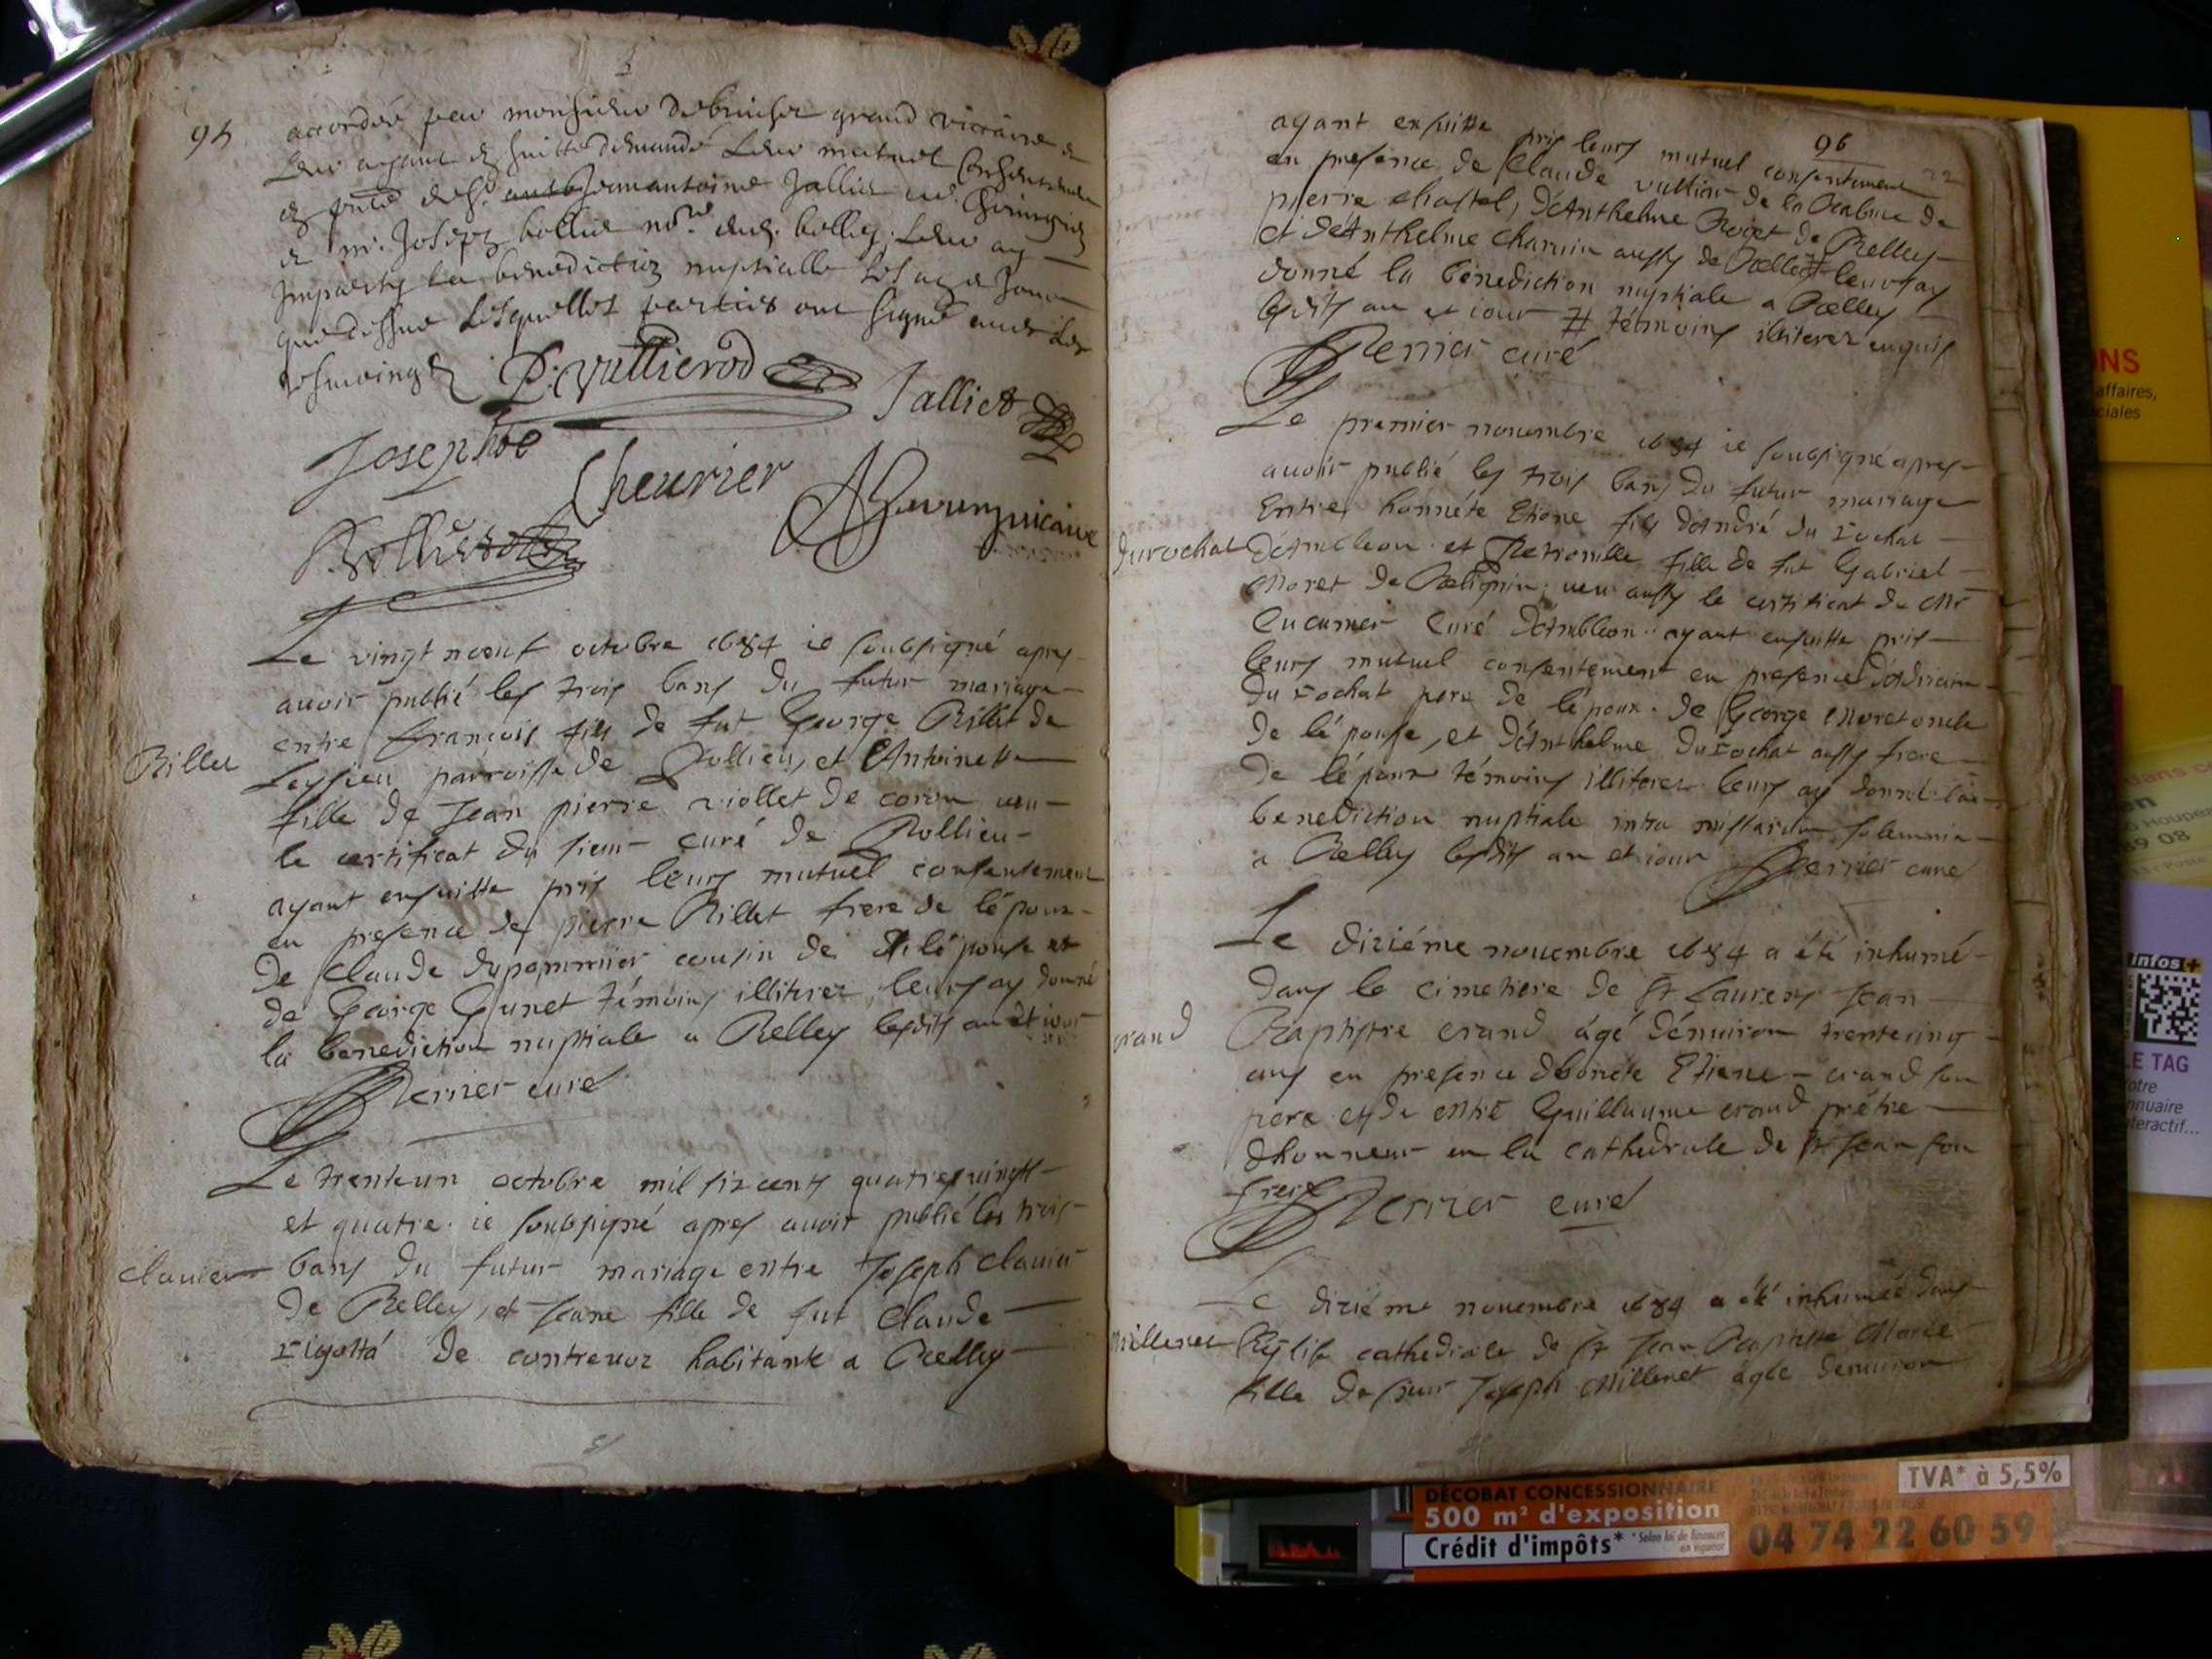 95
accordée par monsieur grand vicaire &
Leur ayant ensuitte demandé Leur mutuel Consentement
Jeanantoine Jallier
& mr. Joseph bollie Leur ay
Imparty La benediction nuptialle Les an & Jour
que dessus Lesquelles parties ont signé avec Les
tesmoings
P. Vullierod
Jallier
Josephte
Cheurier
vicaire
Le vingt neuf octobre 1684 ie soubsigné apres
avoir publié les trois bans du futur mariage
entre François fils de fut George Billet de
Billet
Leyssieu parroisse de Pollieu, et Antoinette
fille de Jean pierre viollet de coron veu
le certificat du sieur curé de Pollieu
ayant ensuitte pris leurs mutuel consentement
en presence de pierre Billet frere de lépoux
De Claude dupommier cousin de lépouse et
de George Gunet témoins illiterez leurs ay donné
la benediction nuptiale a Belley lesdits an et iour
Perrier curé
Le trenteun octobre mil sixcents quatrevingts
et quatre ie soubsigné apres avoir publié les trois
clauier
bans du futur mariage entre Joseph clauier
De Belley, et Jeane fille de fut Claude
rigotta de contrevoz habitante a Belley
96
ayant ensuitte pris leurs mutuel consentement
en presence de Claude vullier de la Balme de
pierre chastel, d'Anthelme de Belley
et d'Anthelme charvin aussy de Belley # leurs ay
donné la bénediction nuptiale a Belley
lesdits an et iour # témoins illiterez enquis
Perrier curé
Le premier novembre 1684 ie soubsigné apres
avoir publié les trois bans du futur mariage
Entre honnéte Etiene fils d'André du rochat
durochat
d'Ambleon et Petronille fille de fut Gabriel
Moret de Belignin; veu aussy le certificat de Mr
Cucumer Curé d'Ambleon ayant ensuitte pris
leurs mutuel consentement en presence
du rochat pere de lépoux de George Moret oncle
de lépouse, et d'Anthelme du rochat aussy frere
de lépoux témoins illiterez leurs ay donné la
benediction nuptiale intra missarum solemnia
a Belley lesdits an et iour Perrier curé
Le diziéme novembre 1684 a été inhumé
dans le cimetiere de St Laurens Jean
crand
Baptiste crand ágé dénviron trentecinq
ans en presence dhonéte Etiene crand son
pere et de Guillaume crand prétre
dhonneur en la cathedrale de St Jean son
frere
Perrier curé
Le diziéme novembre 1684 a été inhumée dans
Millenet
l'Eglise cathedrale de St Jean Baptiste Marie
fille de sieur Joseph Millenet ágée denviron
ONS
affaires,
ciales
89 08
infos+
LE TAG
otre
nnuaire
nteractif...
DÉCOBAT CONCESSIONNAIRE
500 m² d'exposition
Crédit d'impôts*
* Selon loi de finances
en vigueur
TVA* à 5,5%
04 74 22 60 59